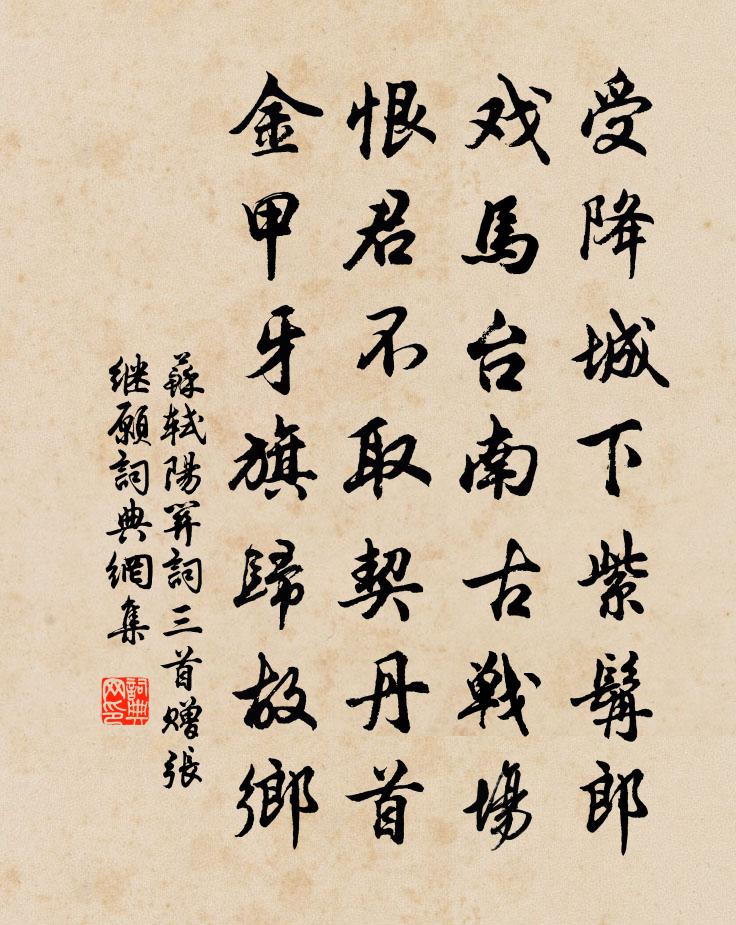 受降城下紫髯郎
戏馬台南古戦場
恨君不取契丹首
金甲牙旗歸故鄉
蘇軾陽関詞三首赠張
继愿詞典網集
詞典网印